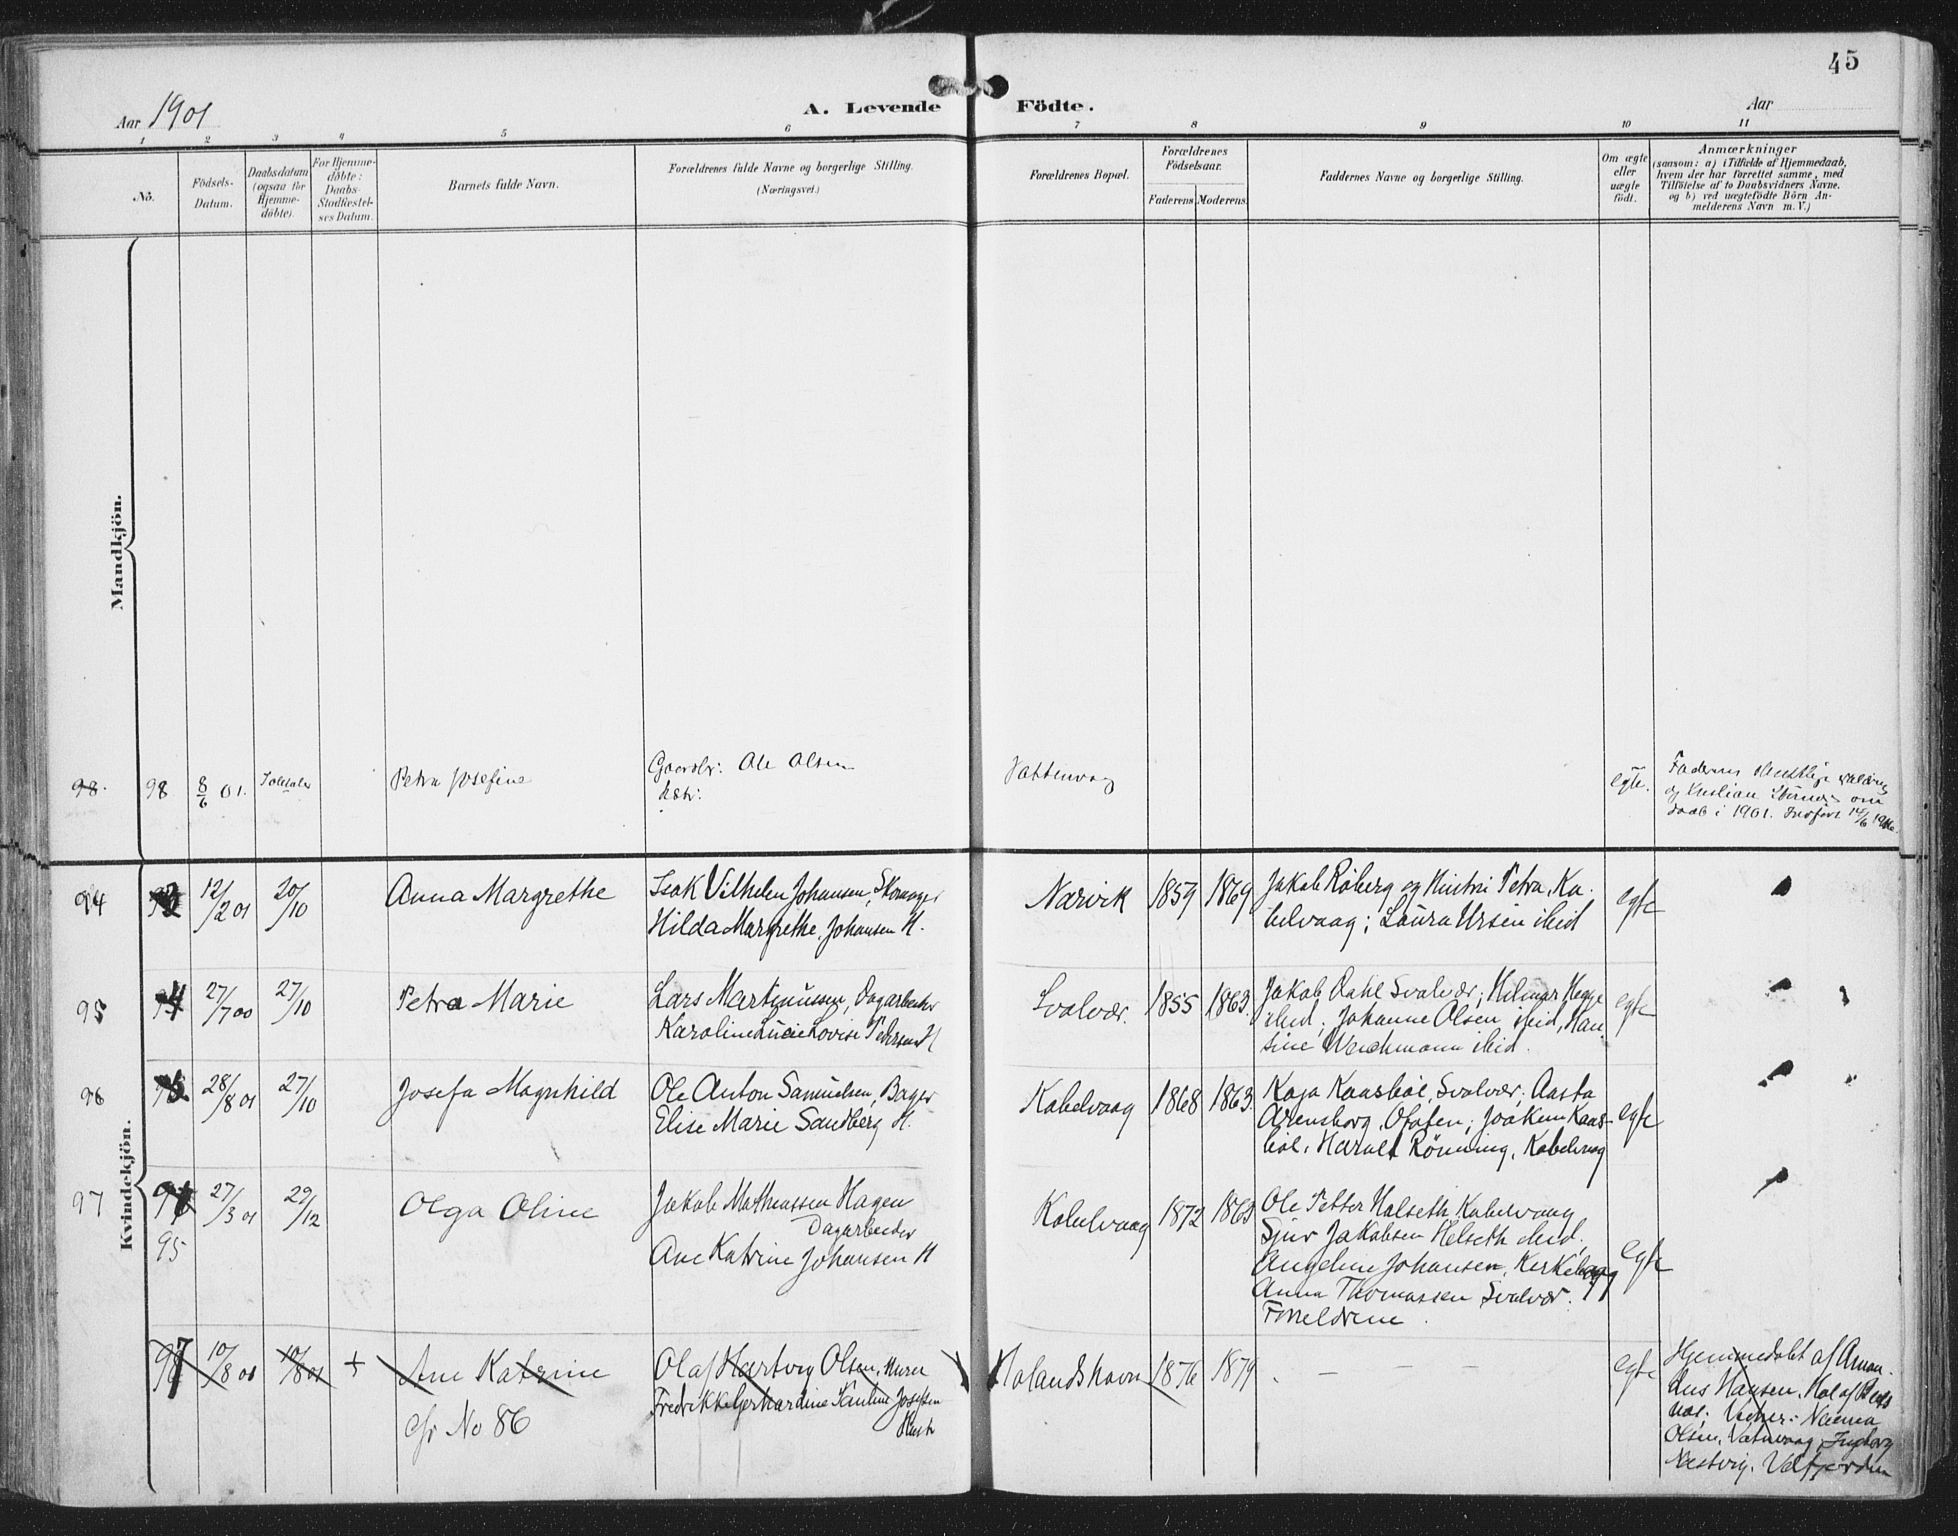 45
Aar 1901
A. Levende Födte.
Aar
1 2 3 4 5 6 7 8 9 10 11
No.
Födsels-
Datum.
Daabsdatum
(ogsaa for
Hjemme-
döbte).
For Hjemme-
döbte:
Daabs-
Stadfæstel-
ses Datum.
Barnets fulde Navn.
Forældrenes fulde Navne og borgerlige Stilling.
(Næringsvei.)
Forældrenes Bopæl.
Forældrenes
Födselsaar.
Faderens. Moderens.
Faddernes Navne og borgerlige Stilling.
Om ægte
eller
uægte
födt.
Anmærkninger
(saasom: a) i Tilfælde af Hjemmedaab,
hvem der har forrettet samme, med
Tilföielse af to Daabsvidners Navne.
og b) ved uægtefödte Börn An-
melderens Navn m. V.)
Mandkjön.
98. 98 8/6 01. Petra Josefine
Ole Olsen
egte.
Faderens
daab i 1901.
Kvindekjön.
94 12/2 01 20/10 Anna Margrethe
Isak Vilhelm Johansen,
Hilda Margrethe Johansen H.
Narvik 1859 1869
Jakob Röberg og Hustru Petra, Ka-
belvaag; Laura Ursin ibid
egte
95 27/7 00 27/10 Petra Marie
Lars Martinussen, Dagarbeider
Karoline Lucie Lovise Pedersen H
Svolvær. 1855 1863.
Jakob Dahl Svolvær; Hilmar Hegge
ibid; Johanne Olsen ibid, Han-
sine Weichmann ibid.
egte
96 28/8 01 27/10 Josefa Magnhild
Ole Anton Samuelsen, Bager
Elise Marie Sandberg H.
Kabelvaag 1868 1863.
Kaja Kaasböl, Svolvær; Aasta
Arensborg, Ofoten; Joakim Kaas-
böl, Harald Rönning, Kabelvaag
egte
97 95 27/3 01 29/12 Olga Oline
Jakob Mathiassen Hagen
Dagarbeider
Ane Katrine Johansen H
Kabelvaag 1872
Ole Petter Halseth Kabelvaag
Sjur Jakobsen Helseth ibid,
Angeline Johansen, Kirkevaag
Anna Thomassen Svolvær.
Forældrene.
egte
97 10/8 01 10/8 01 + Ane Katrine
cfr No 86
Olaf Hartvig Olsen, Murer
Fredrikke Gerhardine Pauline Josefsen
Hustr
Molandshavn 1876 1879
. — — —
egte
Hjemmedöbt af Aman-
dus Hansen,
Naema
Olsen, Vatnvaag, Ingborg
Næstvig,